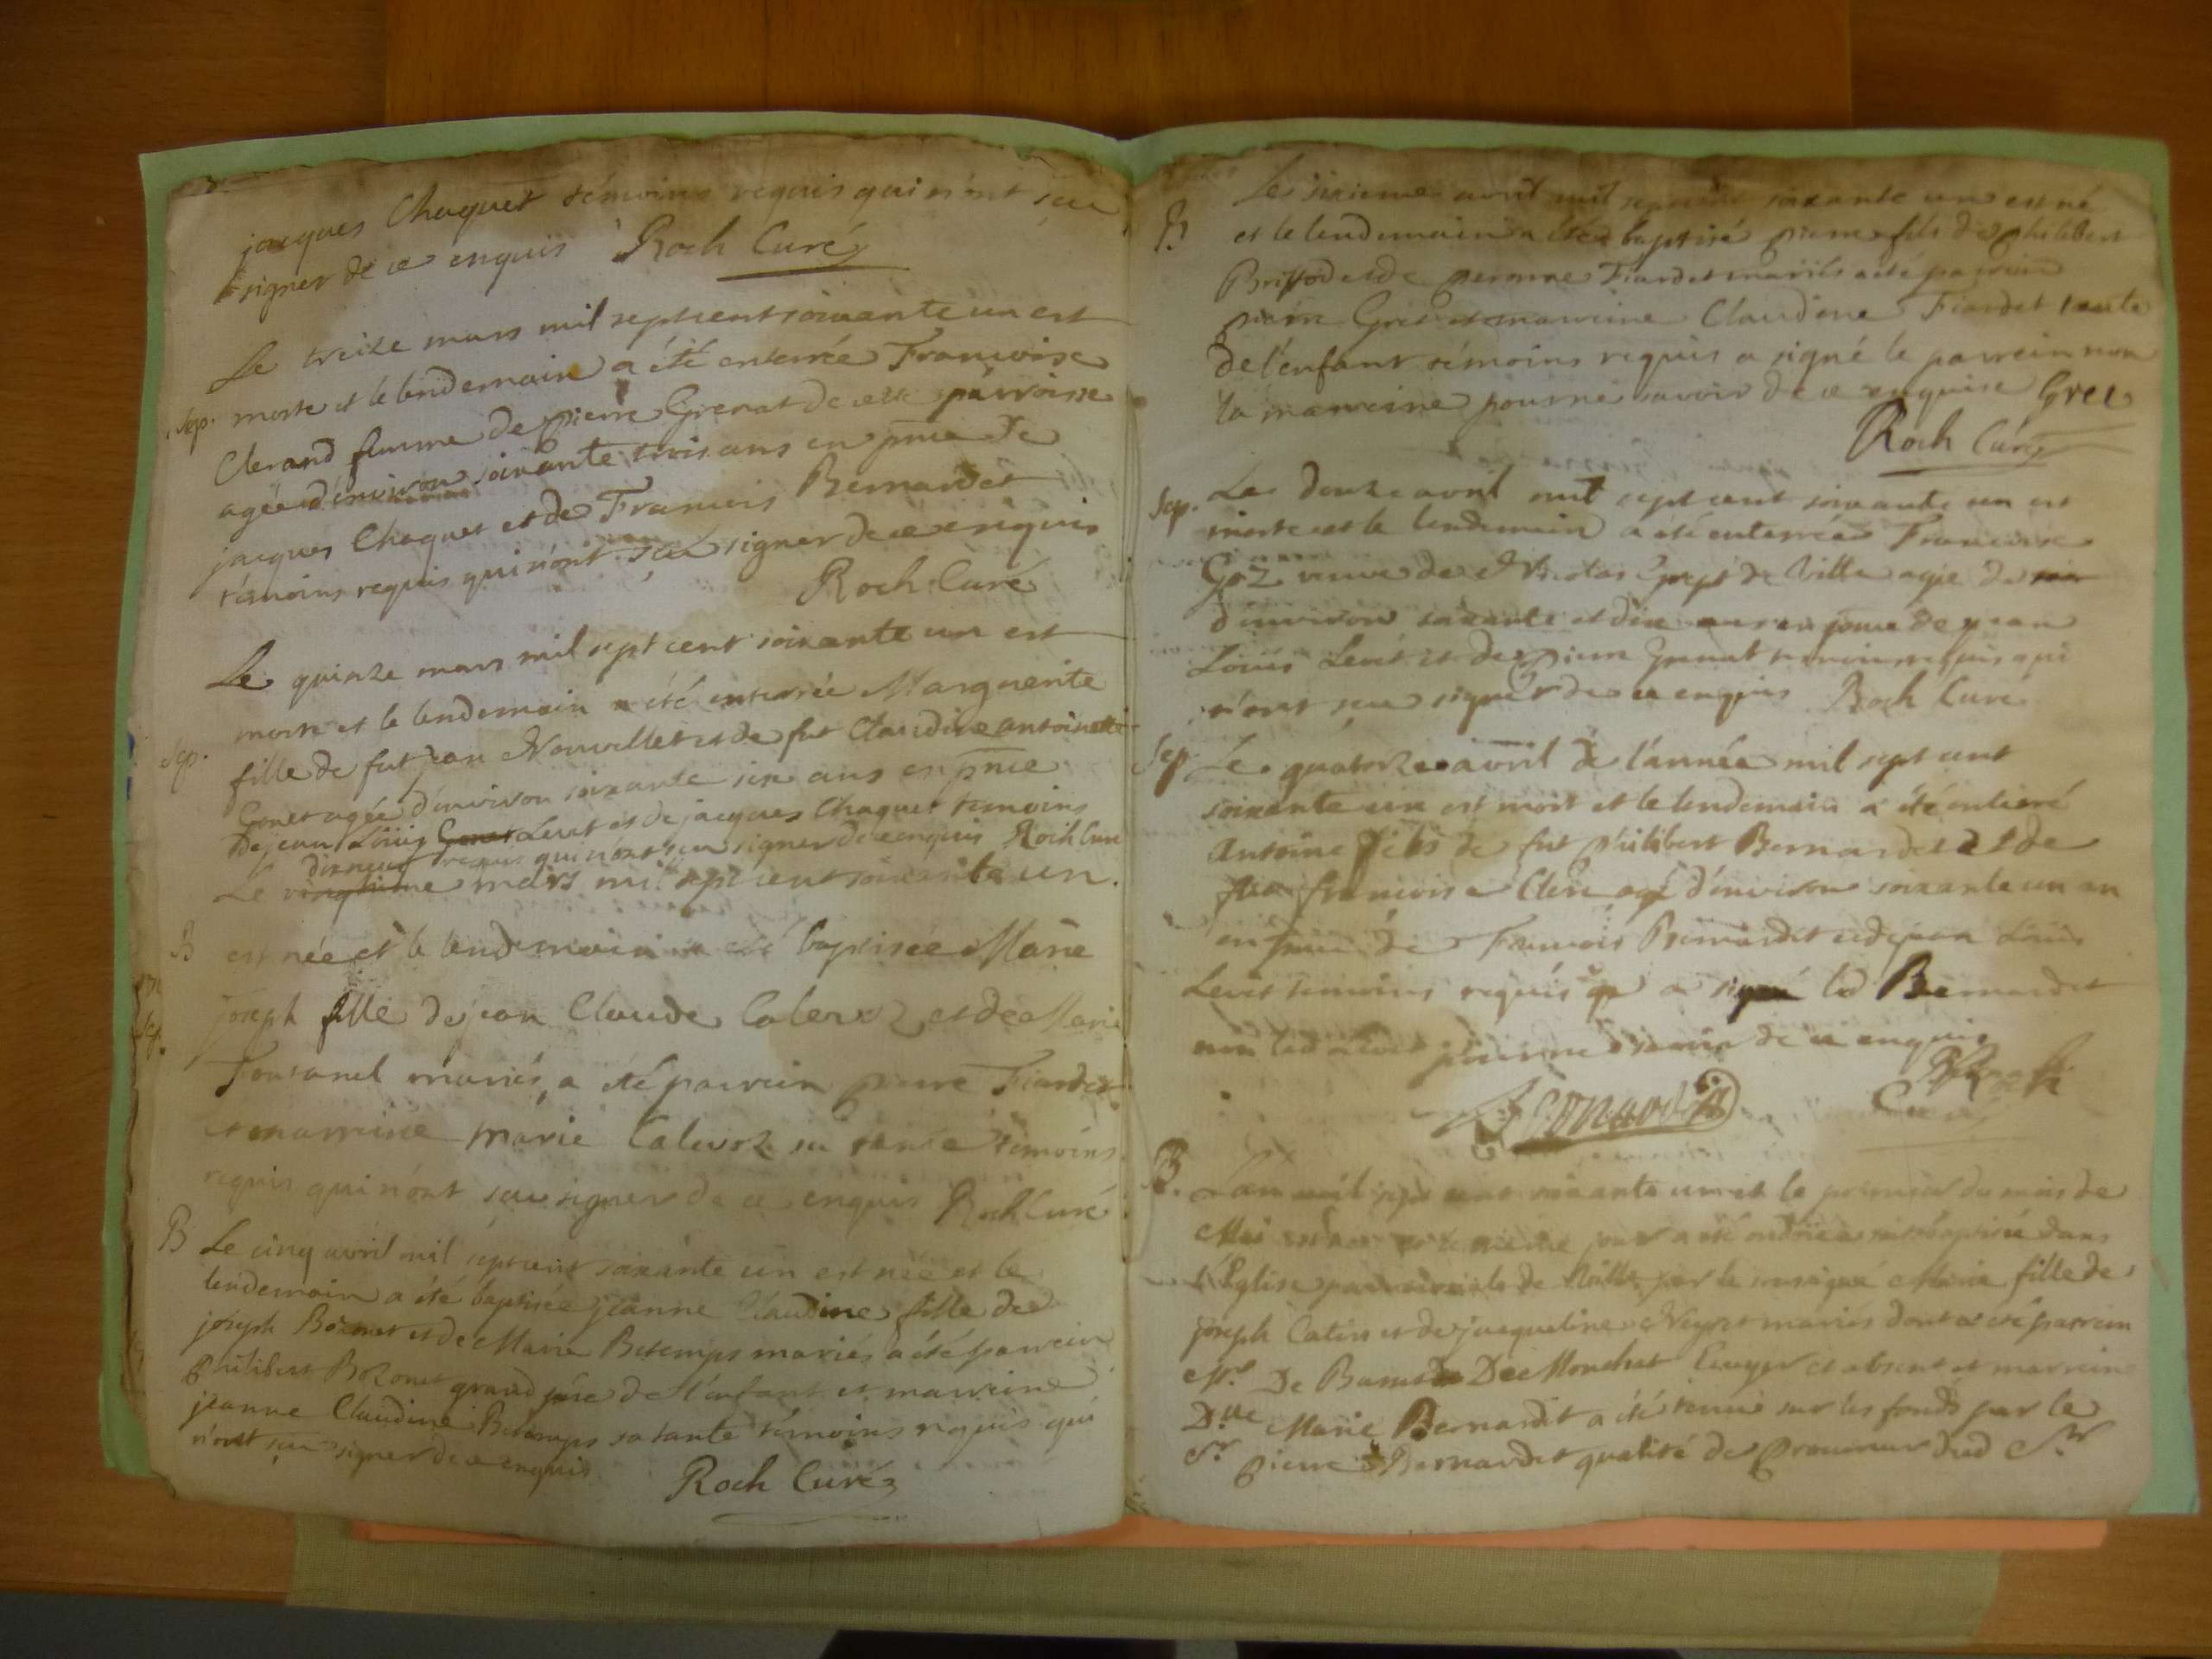 jacques Chaquet témoins requis qui n'ont sçu
signer de ce enquis Roch Curé
Le treize mars mil septcent soixante un est
Sep. morte et le lendemain a été enterrée Françoise
Clerand femme de pierre Grenat de cette parroisse
agée d'environ soixante trois ans en pnce de
jacques Chaquet et de Francois Bernardet
témoins requis qui n'ont sçu signer de ce enquis
Roch Curé
Le quinze mars mil sept cent soixante un est
morte et le lendemain a été enterrée Marguerite
Sep. fille de fut jean Nouvellet et de fut Claudine antoinette
Gonet agée d'environ soixante six ans en pnce
de jean Loüis Gonet Levet et de jacques Chaquet temoins
requis qui n'ont sçu signer de ce enquis Roch Curé
dixneuf
Le vingtieme mars mil septcent soixante un
B est née et le lendemain a été baptisée Marie
joseph fille de jean Claude Calevoz et de Marie
Fontanel mariés, a été parrein pierre Fiardet
et marreine marie Calevoz sa tante témoins
requis qui n'ont sçu signer de ce enquis Roch Curé
B Le cinq avril mil septcent soixante un est née et le
lendemain a été baptisée jeanne Claudine fille de
joseph Bozonet et de Marie Betemps mariés a été parrein
philibert Bozonet grand père de l'enfant et marreine
jeanne Claudine Betemps sa tante témoins requis qui
n'ont sçu signer de ce enquis
Roch Curé
Le sixieme avril mil septcent soixante un est né
B. et le lendemain a été baptisé pierre fils de philibert
et de peronne Fiardet mariés a été parrein
pierre Gret et marreine Claudine Fiardet tante
de l'enfant témoins requis a signé le parrein non
la marreine pour ne savoir de ce enquise Gret
Roch Curé
Sep. Le douze avril mil sept cent soixante un est
morte et le lendemain a été enterrée Francoise
Goz veuve de Nicolas de Ville agée de
d'environ soixante et dix ans en pnce de jean
Loüis Levet et de pierre Grenat temoins requis qui
n'ont sçu signer de ce enquis Roch Curé
Sep. Le quatorze avril de l'année mil sept cent
soixante un est mort et le lendemain a été enterré
Antoine fils de fut philibert Bernardet et de
fut francoise Clerc agé d'environ soixante un an
en pnce de Francois Bernardet et de jean Loüis
Levet temoins requis a signé led Bernardet
non led Levet pour ne savoir de ce enquis
Roch
Bernardet Curé
B. L'an mil sept cent soixante un et le premier du mois de
Mai est née et le meme jour a été ondoiée baptisée dans
l'Eglise parroissiale de Ville par le soussigné Marie fille de
joseph Catin et de jacqueline Neyret mariés dont a été parrein
Sr. De De Monchat Ecuyer et absent et marreine
D.lle Marie Bernardet a été tenue sur les fonds par le
Sr. pierre Bernardet qualité de procureur dud Sr.